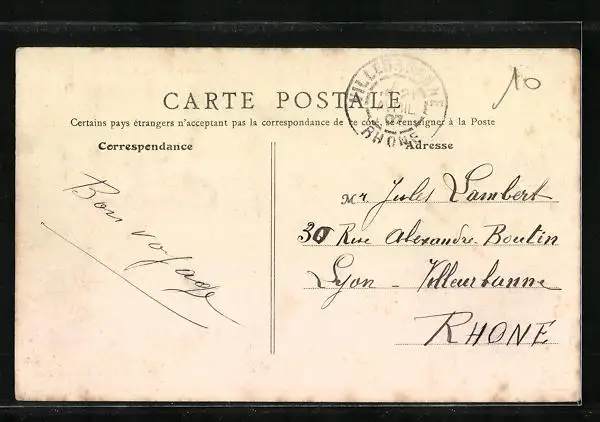 10
CARTE POSTALE
Certains pays étrangers n'acceptent pas la correspondance de ce côté, se renseigner à la Poste
Correspondance
Adresse
VILLEURBANNE
RHONE
Bon voyage
Mr Jules Lambert
30 Rue Alexandre Boutin
Lyon - Villeurbanne
RHONE